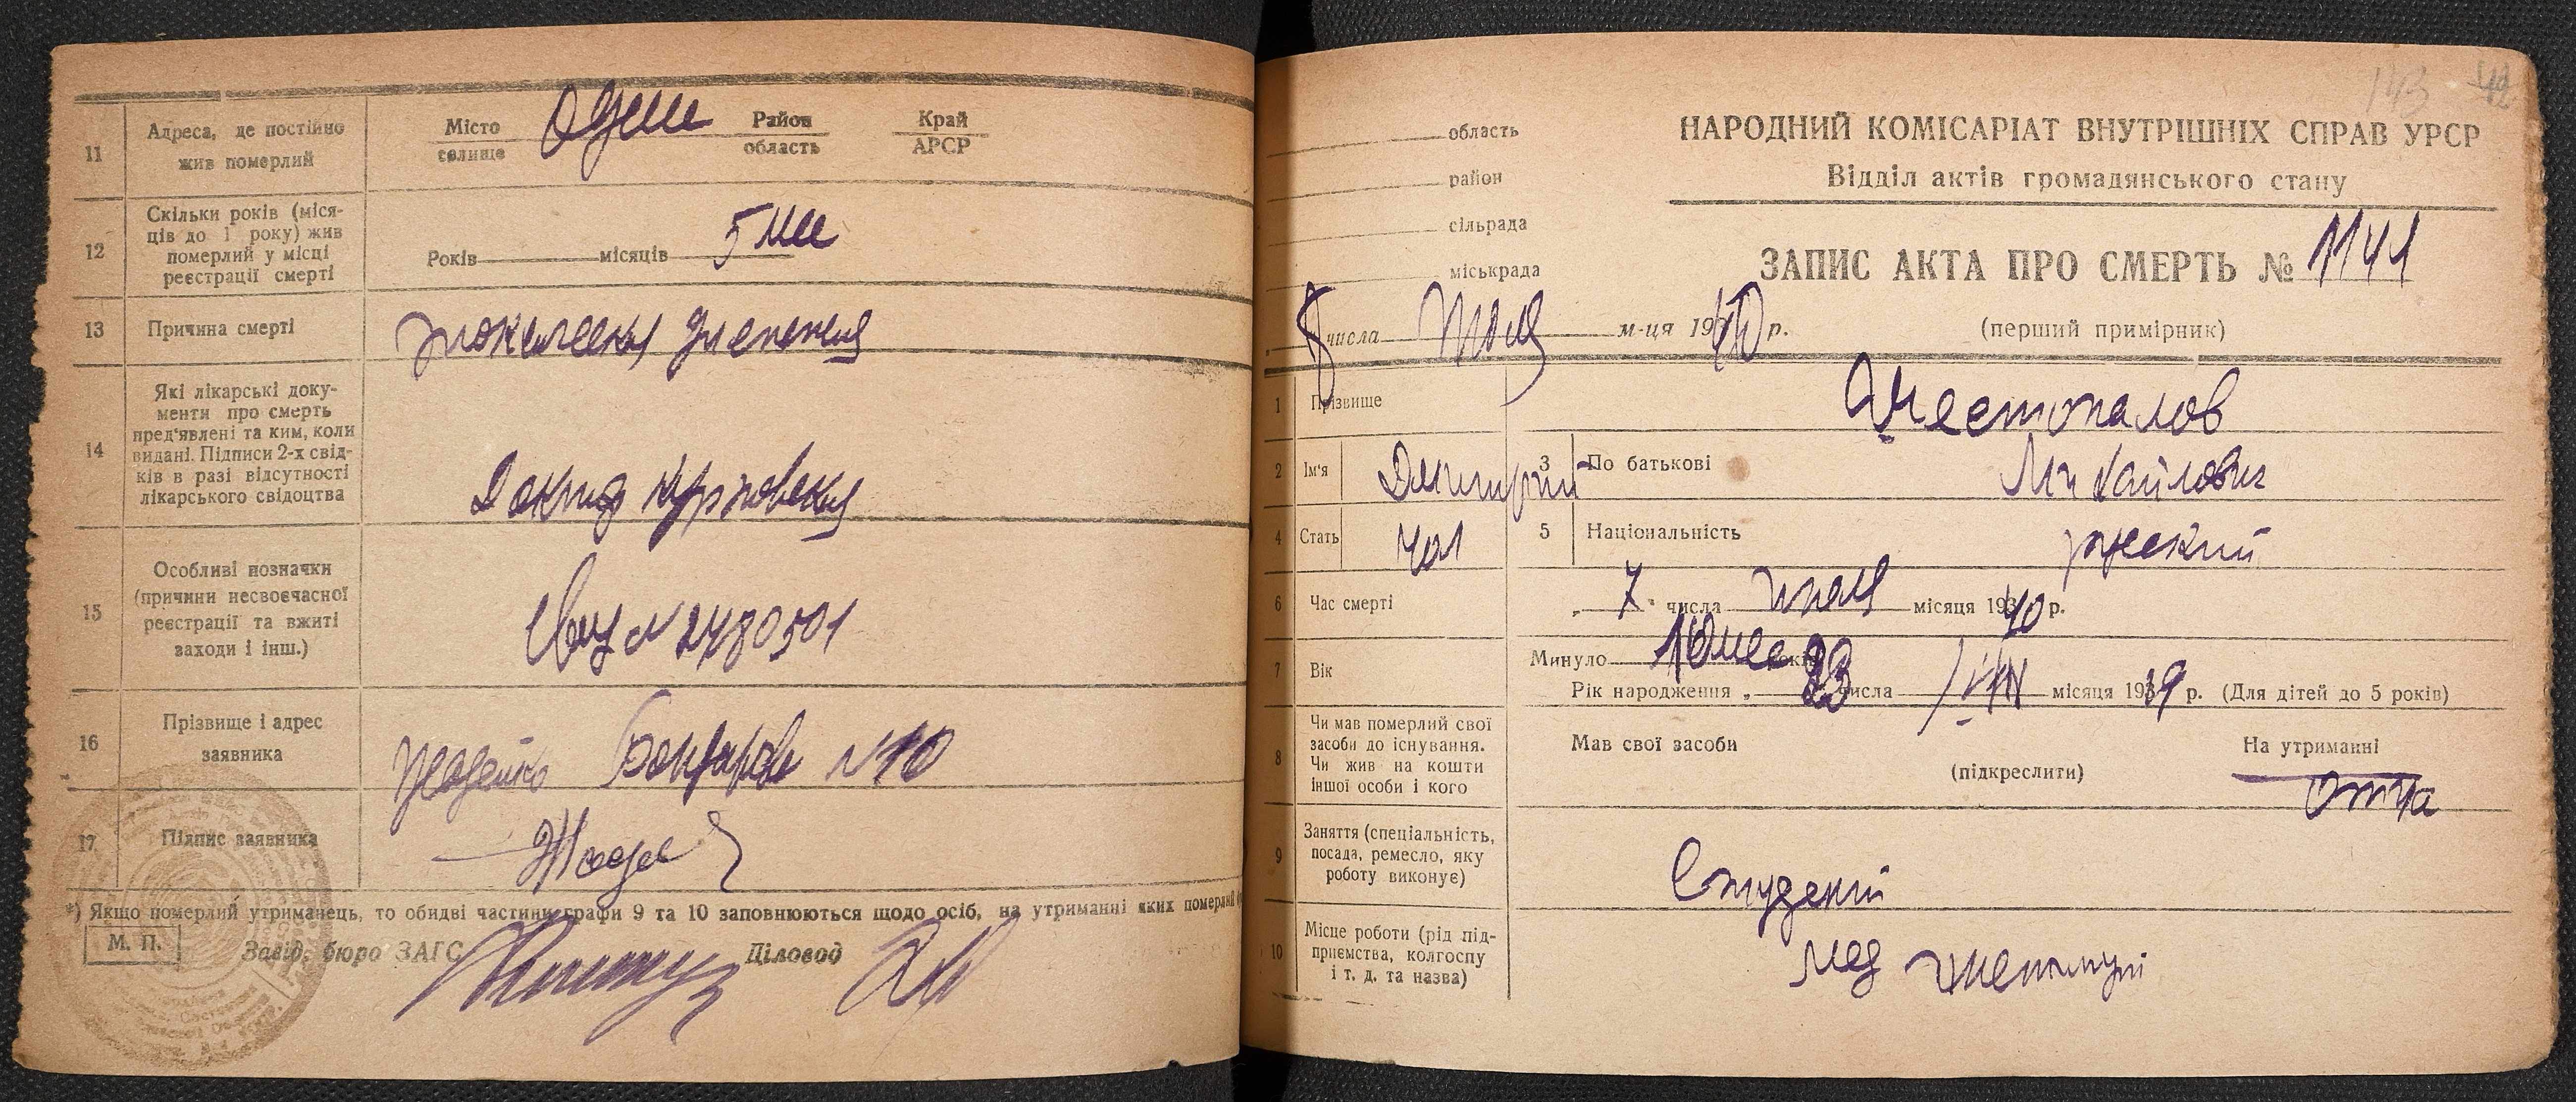 11
Адреса, де постійно
жив померлий
Місто
селище
Одеса
Район
область
Край
АРСР
12
Скільки років (міся-
ців до 1 року) жив
померлий у місці
реєстрації смерті
Років місяців 5 мес
13
Причина смерті
токсическая диспепсия
14
Які лікарські доку-
менти про смерть
пред'явлені та ким, коли
видані. Підписи 2-х свід-
ків в разі відсутності
лікарського свідоцтва
Доктор
15
Особливі позначки
(причини несвоєчасної
реєстрації та вжиті
заходи і інш.)
Свид № 2480501
16
Прізвище і адрес
заявника
№ 10
17
Підпис заявника
*) Якщо померлий утриманець, то обидві частини графи 9 та 10 заповнюються щодо осіб, на утриманні яких померлий
М. П.
Завід. бюро ЗАГС
Діловод
143 42
область
район
сільрада
міськрада
8 числа июля м-ця 1940 р.
НАРОДНИЙ КОМІСАРІАТ ВНУТРІШНІХ СПРАВ УРСР
Відділ актів громадянського стану
ЗАПИС АКТА ПРО СМЕРТЬ № 1141
(перший примірник)
1 Прізвище Шестопалов
2 Ім'я Дмитрий 3 По батькові Михайлович
4 Стать чол 5 Національність русский
6 Час смерті „ 7 " числа июля місяця 1940 р.
7 Вік
Минуло 10 мес років
Рік народження „ 23 числа VIII місяця 1939 р. (Для дітей до 5 років)
8
Чи мав померлий свої
засоби до існування.
Чи жив на кошти
іншої особи і кого
Мав свої засоби
(підкреслити)
На утриманні
отца
9
Заняття (спеціальність,
посада, ремесло, яку
роботу виконує)
Студент
10
Місце роботи (рід під-
приємства, колгоспу
і т. д. та назва)
мед институт